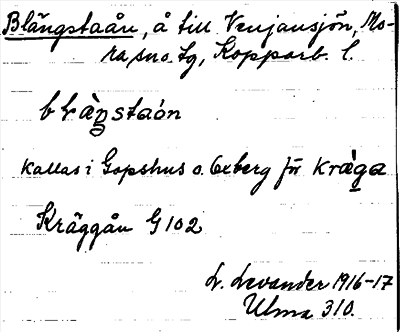 Blängstaån, å till Venjansjön, Mo-
ra sn o. tg, Kopparb. l.
kallas i Gopshus o. Oxberg för kràga
Kräggån G 102
L. Levander 1916-17
Ulma 310.